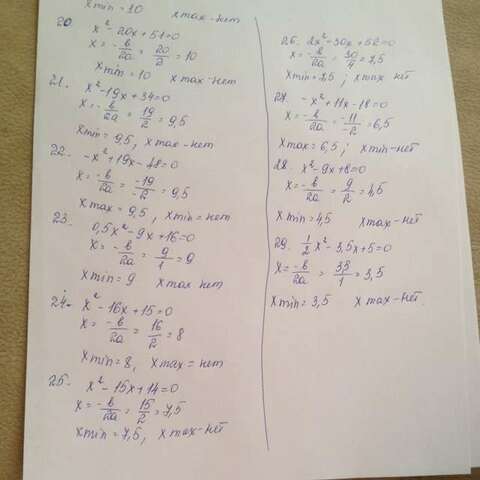 xmin = 10 xmax - нет
20. x² - 20x + 51 = 0
x = -b/2a = 20/2 = 10
xmin = 10 xmax - нет
21. x² - 19x + 34 = 0
x = -b/2a = 19/2 = 9,5
xmin = 9,5, xmax - нет
22. -x² + 19x - 48 = 0
x = -b/2a = -19/-2 = 9,5
xmax = 9,5, xmin = нет
23. 0,5x² - 9x + 16 = 0
x = -b/2a = 9/1 = 9
xmin = 9 xmax нет
24. x² - 16x + 15 = 0
x = -b/2a = 16/2 = 8
xmin = 8, xmax = нет
25. x² - 15x + 14 = 0
x = -b/2a = 15/2 = 7,5
xmin = 7,5, xmax - нет
26. 2x² - 30x + 52 = 0
x = -b/2a = 30/4 =
; xmax нет
-x² + 11x - 18 = 0
x = -b/2a = -11/-2 = 6,5
xmax = 6,5; xmin - нет
28. x² - 9x + 8 = 0
x = -b/2a = 9/2 = 4,5
xmin = 4,5 xmax - нет
29. 1/2 x² - 3,5x + 5 = 0
x = -b/2a = 35/1 = 3,5
xmin = 3,5 xmax - нет.